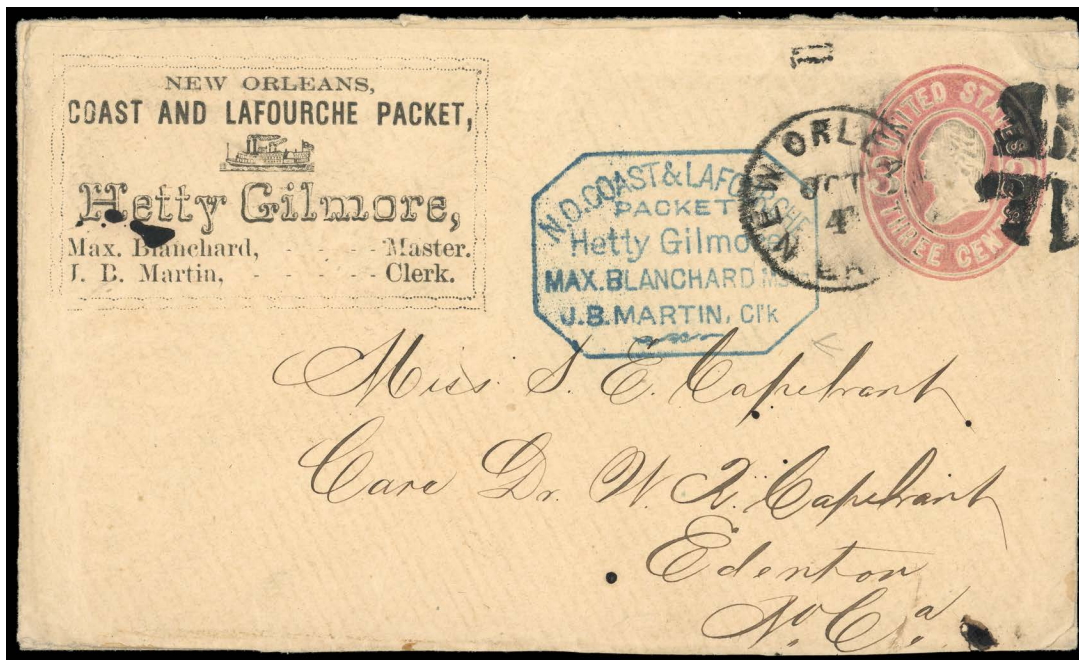 NEW ORLEANS,
COAST AND LAFOURCHE PACKET,
Hetty Gilmore,
Max. Blanchard, - - - Master.
J. B. Martin, - - - - - Clerk.
N.O. COAST & LAFOURCHE
PACKET
Hetty Gilmore
MAX. BLANCHARD
J.B. MARTIN, Cl'k
NEW ORLEANS
OCT
4
LA
UNITED STATES
THREE CENTS
Miss S. E. Capehart
Care Dr. W. R. Capehart
Edenton
No. Ca.